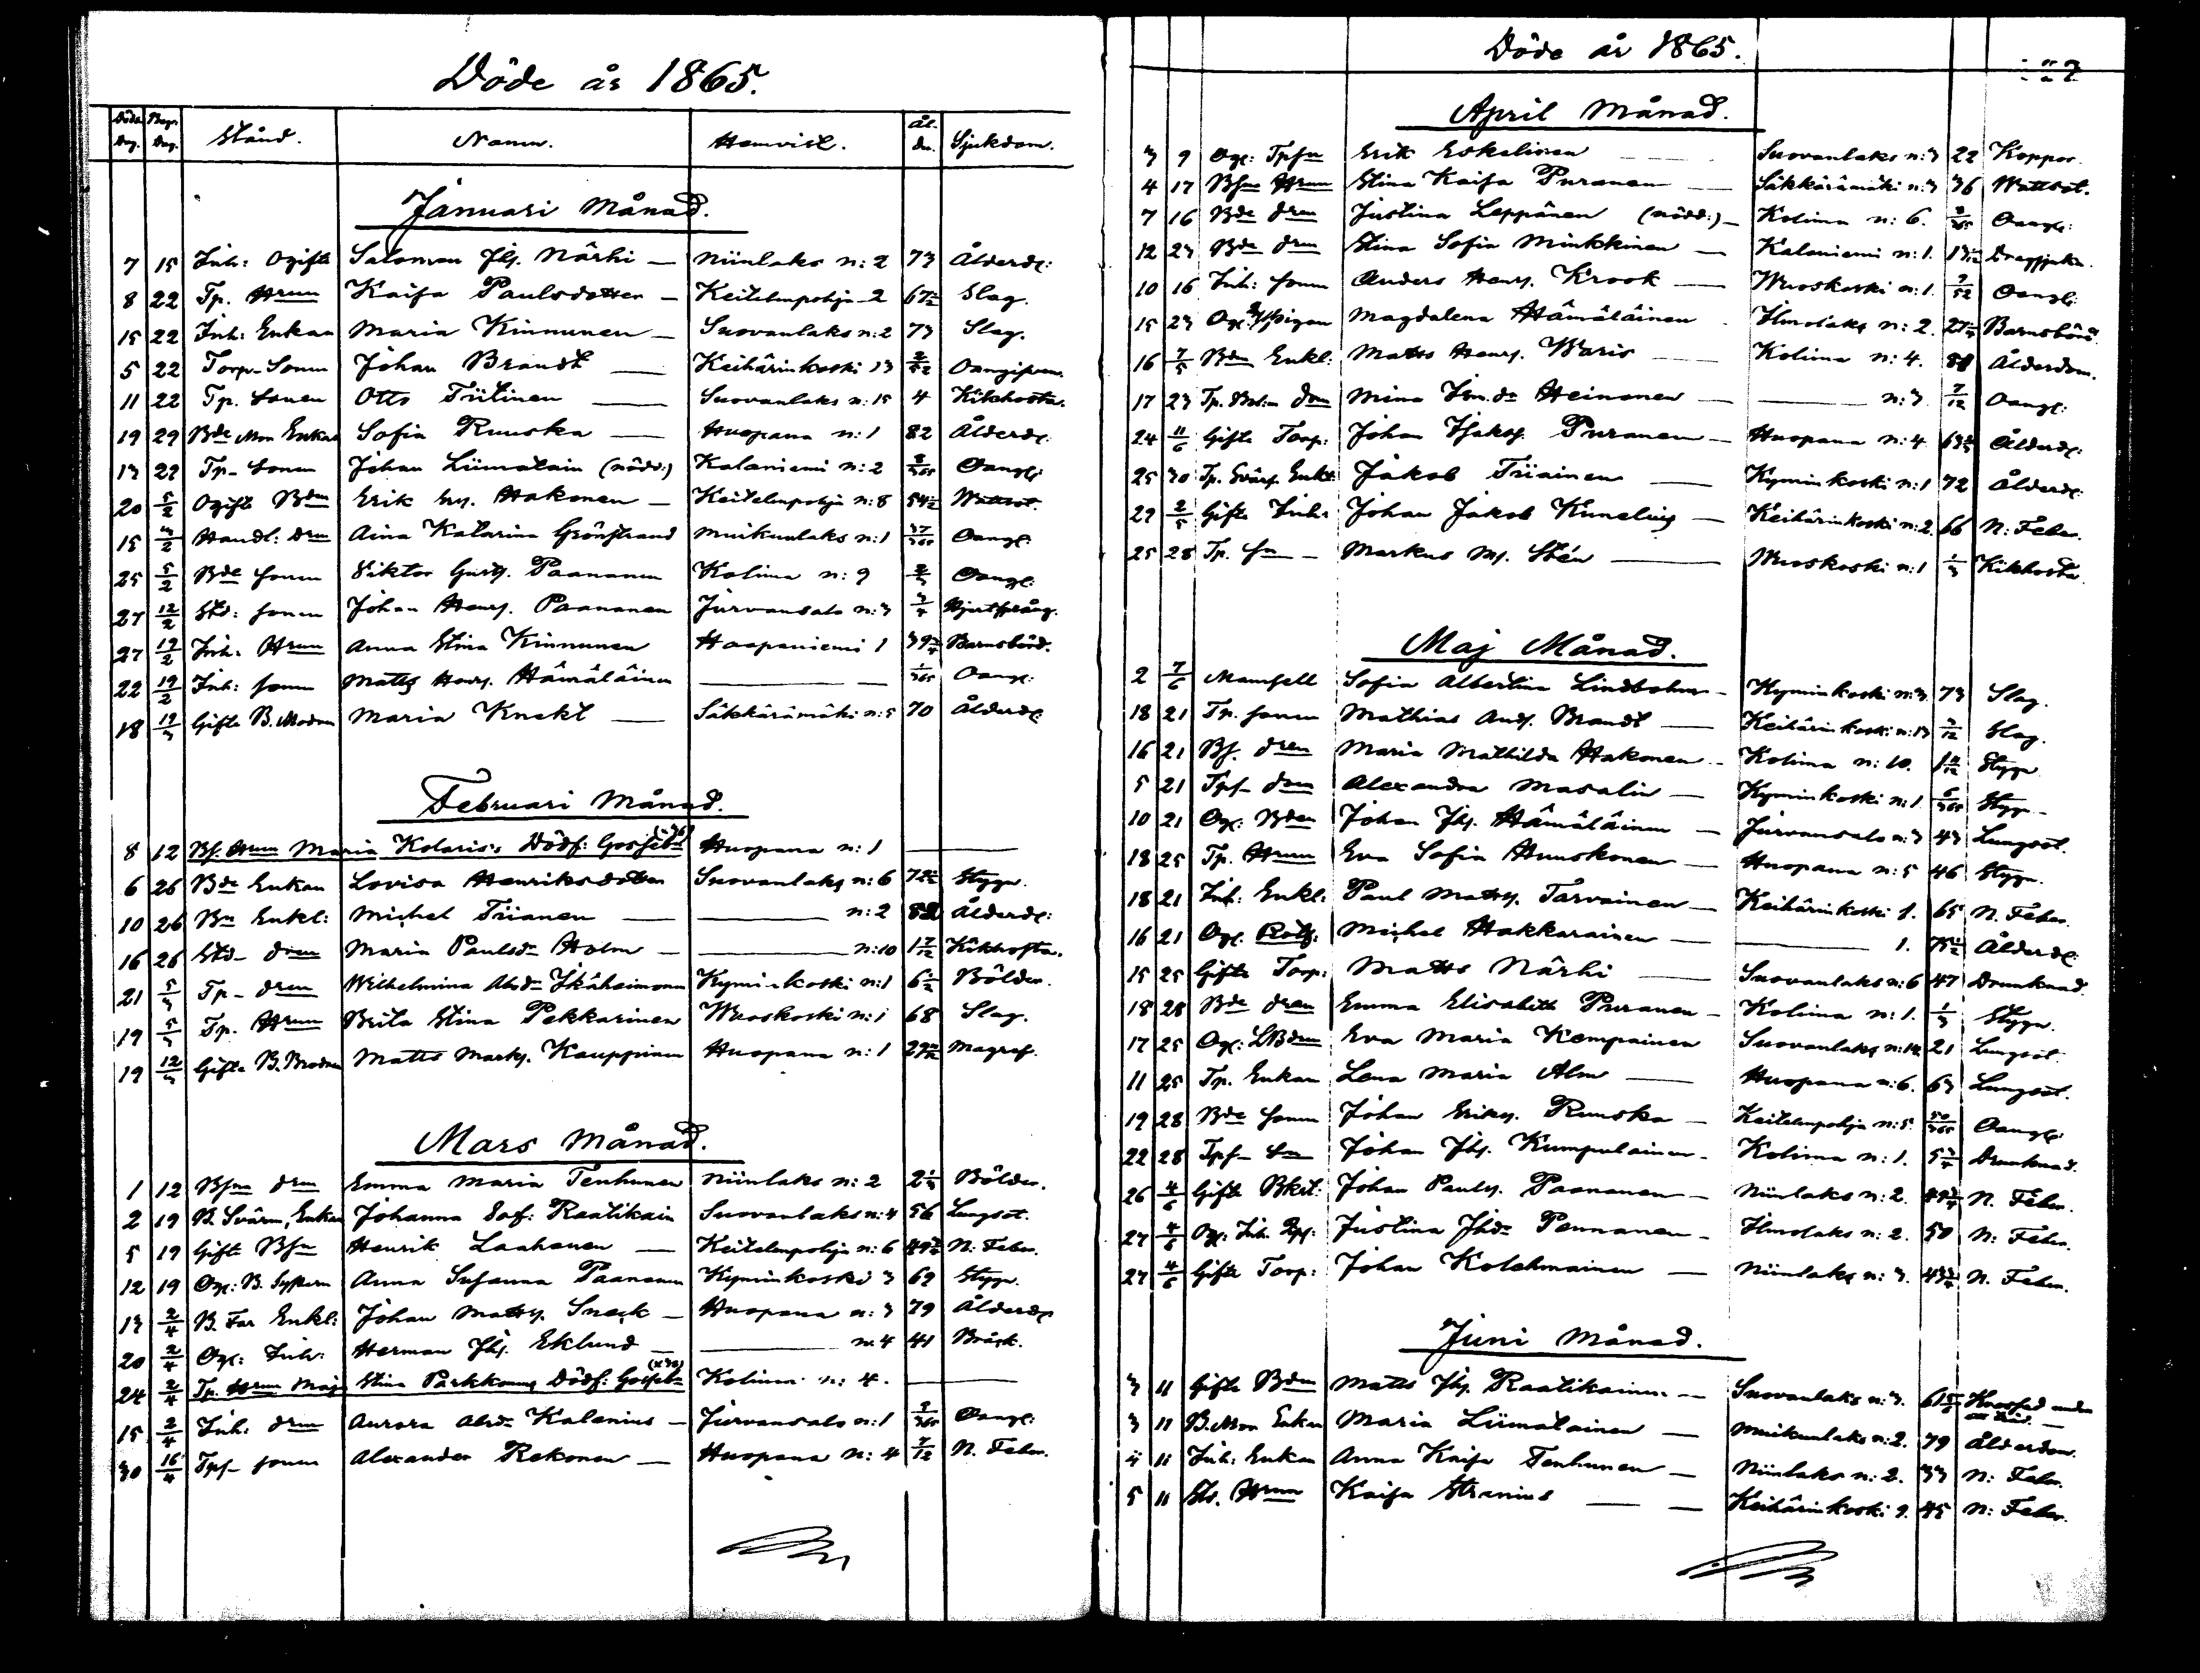 Döde år 1865.
Döds Dag. Begr. Dag. Stånd. Namn. Hemvist. Ål. dn. Sjukdom.
Januari Månad.
7 15 Inh: Ogifte Salomon Jhs. Närhi — Niinlaks n: 2 73 Ålderd:
8 22 Tp. Hrun Kaisa Paulsdotter — Keitelempohja 2 Slag.
15 22 Inh: Enkan Maria Kinnunen — Suovanlaks n: 2 73 Slag.
5 22 Torp. Sonen Johan Brandt — Keihärinkoski 13 Oangifven.
11 22 Tp. Sonen Otto Tiitinen — Suovanlaks n: 15 4 Kikhosta.
19 29 Bde Mor Enkan Sofia Ruuska — Huopana n: 1 82 Ålderd:
13 22 Tp. Sonen Johan Liimatain (nöds:) Kalaniemi n: 2 8/365 Oangf:
20 5/2 Ogifte Bdn Erik Ers. Hakonen — Keitelempohja n: 8 Wattsot.
15 5/2 Handl: drn Aina Katarina Grönstrand Muikunlaks n: 1 Oangf:
25 5/2 Bde sonen Viktor Gust. Paananen Kolima n: 9 Oangf:
27 12/2 Std: sonen Johan Henr. Paananen Jurvansalo n: 3 3/4 Hjertsprång.
27 19/2 Inh: Hrun Anna Stina Kinnunen Haapaniemi 1 Barnsbörd.
22 19/2 Inh: sonen Matts Henr. Hämäläinen — 1/365 Oangf:
18 12/3 Gifte B. Modren Maria Knekt — Säkkärämäki n: 5 70 Ålderd:
Februari Månad.
8 12 Bs. Hrun Maria Kolaris's Dödf: Gossebn Huopana n: 1 —
6 26 Bde Enkan Lovisa Henriksdotter Suovanlaks n: 6 Stygn.
10 26 Bn Enkl: Michel Tiianen — n: 2 82 Ålderd:
16 26 Std drn Maria Paulsdr Holm — n: 10 1 7/12 Kikhosta.
21 5/3 Tp. drn Wilhelmina Abrdr Ikäheimonen Kyminkoski n: 1 Bölder.
19 5/3 Tp. Hrun Brita Stina Pekkarinen Wuoskoski n: 1 68 Slag.
19 12/3 Gifte B. Brodren Matts Marks. Kauppinen Huopana n: 1 Magref.
Mars Månad.
1 12 Bsns drn Emma Maria Tenhunen Niinlaks n: 2 2 1/3 Bölder.
2 19 B. Svärm, Enkan Johanna Sof: Raatikain Suovanlaks n: 4 56 Lungsot.
5 19 Gifte Bsn Henrik Laahanen — Keitelempohja n: 6 N. Feber.
12 19 Og: B. Systern Anna Susanna Paananen Kyminkoski 3 69 Stygn.
13 2/4 B. Far Enkl: Johan Matts. Sneck — Huopana n: 3 79 Ålderd:
20 2/4 Og: Inh: Herman Jhs. Eklund — n: 4 41 Bråck.
24 2/4 Tp. Hrun Maj Stina Parkkonens Dödf: Gossebn Kolima n: 4 —
15 2/4 Inh: drn Aurora Abrdr Kalenius — Jurvansalo n: 1 Oangf:
30 16/4 Tpf sonen Alexander Rekonen — Huopana n: 4 7/12 N. Feber.
Döde år 1865.
April Månad.
3 9 Og: Tpsn Erik Eskelinen — Suovanlaks n: 3 22 Koppor.
4 17 Bsns Hrun Stina Kaisa Puranen — Säkkärämäki n: 3 36 Wattsot.
7 16 Bde drn Justina Leppänen (nöds:) — Kolima n: 6. Oangf:
12 23 Bde drn Stina Sofia Minkkinen — Kalaniemi n: 1. Dragsjuka.
10 16 Inh: sonen Anders Henr. Krook — Wuoskoski n: 1. Oangf:
15 23 Og: Pigan Magdalena Hämäläinen Ilmolaks n: 2. Barnsbörd.
16 7/5 Bdn Enkl: Matts Henr. Waris — Kolima n: 4. 88 Ålderdom.
17 23 Tp. drn Mina Heinonen — n: 3. 7/12 Oangf:
24 11/6 Gifte Torp: Johan Isaks. Puranen — Huopana n: 4. Ålderd:
25 30 Tp. Svärf Enkl: Jakob Tiiainen — Kyminkoski n: 1 72 Ålderd:
29 2/5 Gifte Inh: Johan Jakob Kunelius — Keihärinkoski n: 2. 66 N: Feber.
25 28 Tp. sn — Markus Stén — Wuoskoski n: 1 1/3 Kikhosta
Maj Månad.
2 7/6 Mamsell Sofia Albertina Lindbohm — Kyminkoski n: 3. 73 Slag.
18 21 Tp. sonen Mathias And. Brandt — Keihärinkoski n: 13 Slag.
16 21 Bs. dren Maria Mathilda Hakonen — Kolima n: 10. Stygn.
5 21 Tpf drn Alexandra Masalin — Kyminkoski n: 1. Stygn —
10 21 Og: Bdn Johan Jhs. Hämäläinen — Jurvansalo n: 3 43 Lungsot.
18 25 Tp. Hrun Eva Sofia Huuskonen — Huopana n: 5 46 Stygn.
18 21 Inh: Enkl: Paul Matts. Tarvainen — Keihärinkoski 1. 65 N. Feber.
16 21 Og: Rotf: Michel Hakkarainen — 1. Ålderd:
15 25 Gifte Torp: Matts Närhi — Suovanlaks n: 6 47 Drunknad
18 28 Bde dren Emma Elisabeth Puranen — Kolima n: 1. 1/3 Stygn.
17 25 Og: Eva Maria Kempainen Suovanlaks n: 14 21 Lungsot.
11 25 Tp. Enkan Lena Maria Alm — Huopana n: 6. 63 Lungsot.
19 28 Bde sonen Johan Eriks. Ruuska — Keitelempohja n: 5. Oangf:
22 28 Tpf sn Johan Jhs. Kumpulainen — Kolima n: 1. 5 3/4 Drunknad.
26 4/6 Gifte Bkit: Johan Pauls. Paananen — Niinlaks n: 2. N. Feber.
27 4/6 Og: Inh. Justina Jhdr Pennanen — Ilmolaks n: 2. 50 N: Feber.
27 4/6 Gifte Torp: Johan Kolehmainen — Niinlaks n: 3. N. Feber.
Juni Månad.
3 11 Gifte Bdn Matts Jhs. Raatikainen — Suovanlaks n: 3. Krossad under ett träd. —
3 11 B. Mor Enkan Maria Liimatainen — Muikunlaks n: 2. 79 Ålderdom.
4 11 Inh: Enkan Anna Kaisa Tenhunen — Niinlaks n: 2. 33 N: Feber.
5 11 Hrun Kaisa Stranius — Keihärinkoski 9. 45 N: Feber.